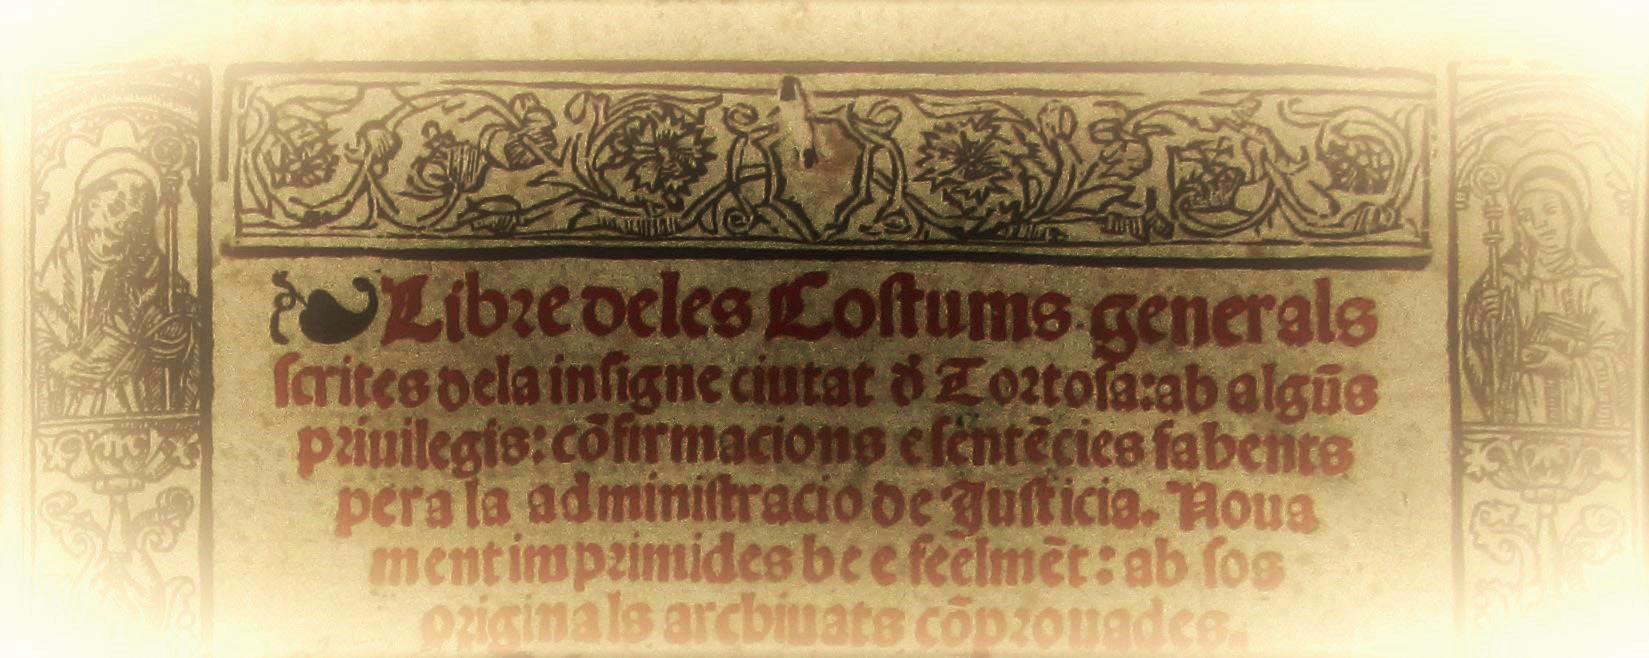 Libre deles Costums generals
scrites dela insigne ciutat đ Tortosa: ab algũs
priuilegis: cõfirmacions e sentẽcies fahents
per a la administracio de Justicia. Noua
ment imprimides be e feelmẽt: ab sos
originals archiuats cõprouades.